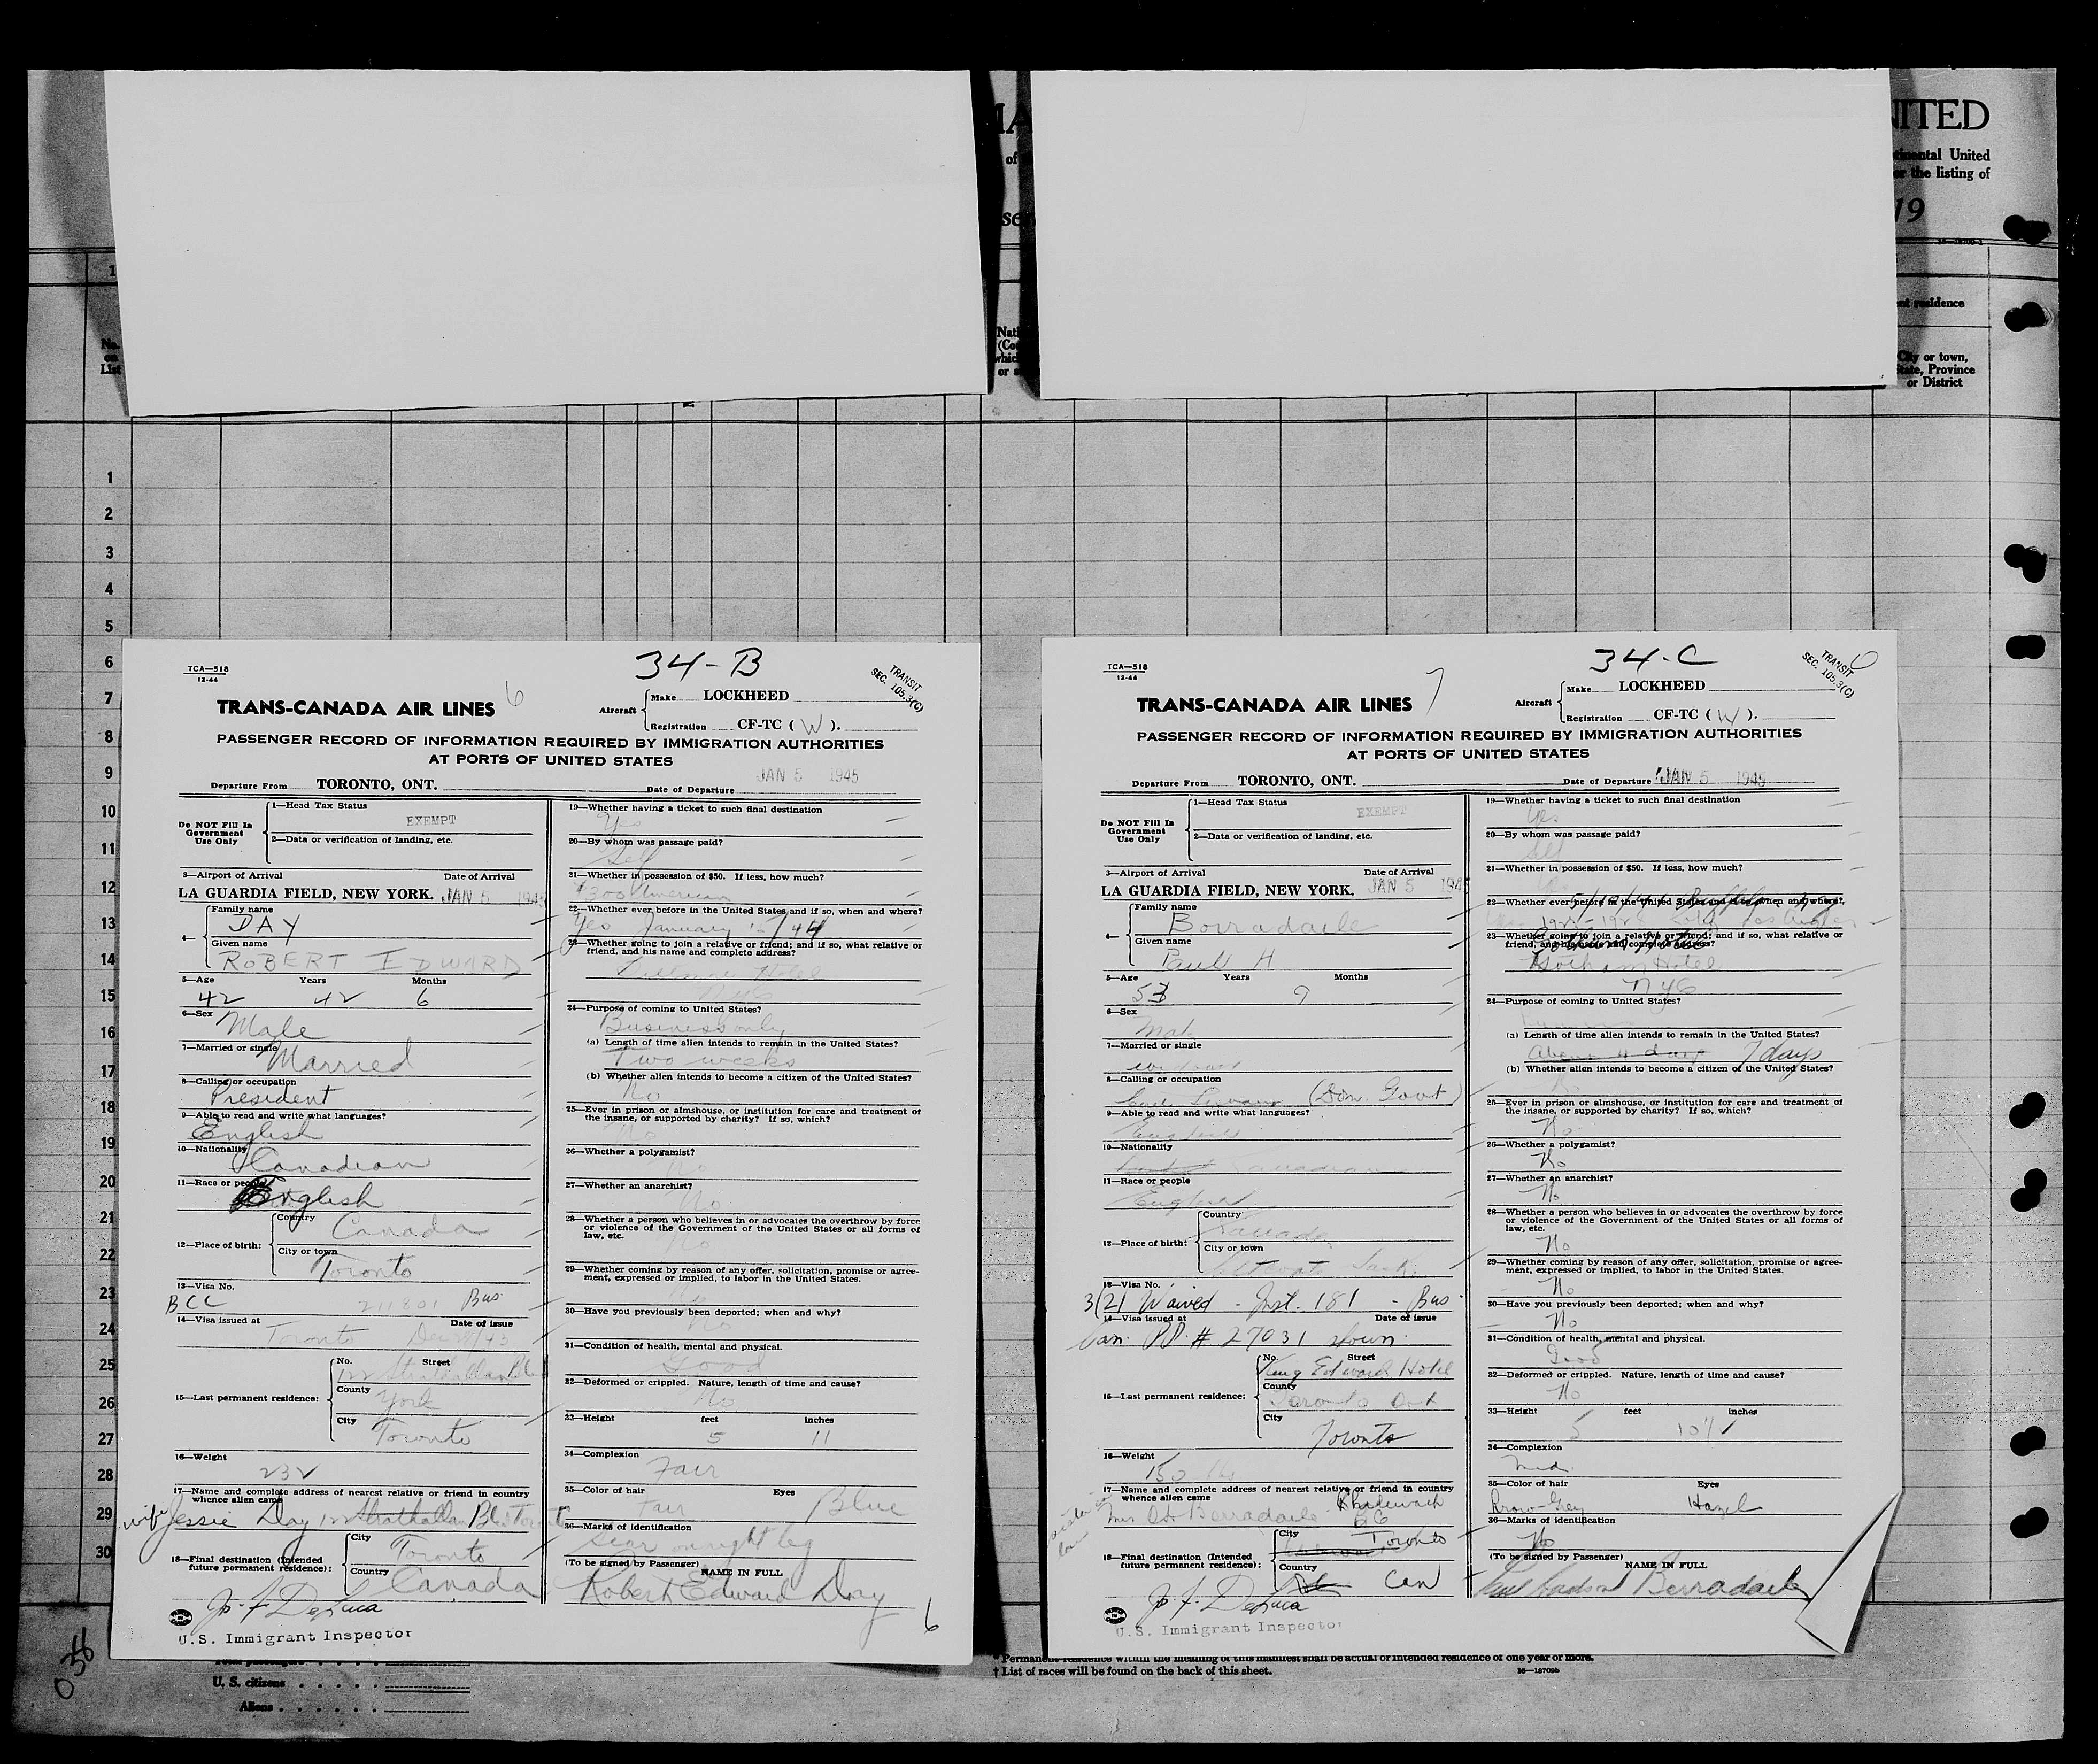 NITED
tinental United
or the listing of
19
No.
on
List
nt residence
City or town,
State, Province
or District
1
2
3
4
5
6
7
8
9
10
11
12
13
14
15
16
17
18
19
20
21
22
23
24
25
26
27
28
29
30
TCA—518
12-44
34-B
TRANSIT
SEC. 105.3(C)
6
TRANS-CANADA AIR LINES
Aircraft
Make LOCKHEED
Registration CF-TC ( W ).
PASSENGER RECORD OF INFORMATION REQUIRED BY IMMIGRATION AUTHORITIES
AT PORTS OF UNITED STATES
Departure From TORONTO, ONT. Date of Departure JAN 5 1945
Do NOT Fill In
Government
Use Only
1—Head Tax Status
EXEMPT
2—Data or verification of landing, etc.
3—Airport of Arrival Date of Arrival
LA GUARDIA FIELD, NEW YORK. JAN 5 1945
4—
Family name
DAY
Given name
ROBERT EDWARD
5—Age Years Months
42 42 6
6—Sex
Male
7—Married or single
Married
8—Calling or occupation
President
9—Able to read and write what languages?
English
10—Nationality
Canadian
11—Race or people
English
12—Place of birth:
Country
Canada
City or town
Toronto
13—Visa No.
BCC 211801 Bus.
14—Visa issued at Date of issue
Toronto
15—Last permanent residence:
No. Street
122 Strathallan Blvd
County
York
City
Toronto
16—Weight
232
17—Name and complete address of nearest relative or friend in country
whence alien came
wife Jessie Day 122 Strathallan Blvd Toronto
18—Final destination (Intended
future permanent residence):
City
Toronto
Country
Canada
U.S. Immigrant Inspector
19—Whether having a ticket to such final destination
Yes
20—By whom was passage paid?
Self
21—Whether in possession of $50. If less, how much?
$300 American
22—Whether ever before in the United States and if so, when and where?
Yes January /44
23—Whether going to join a relative or friend; and if so, what relative or
friend, and his name and complete address?
Hotel
24—Purpose of coming to United States?
Business only
(a) Length of time alien intends to remain in the United States?
Two weeks
(b) Whether alien intends to become a citizen of the United States?
No
25—Ever in prison or almshouse, or institution for care and treatment of
the insane, or supported by charity? If so, which?
No
26—Whether a polygamist?
No
27—Whether an anarchist?
No
28—Whether a person who believes in or advocates the overthrow by force
or violence of the Government of the United States or all forms of
law, etc.
No
29—Whether coming by reason of any offer, solicitation, promise or agree-
ment, expressed or implied, to labor in the United States.
No
30—Have you previously been deported; when and why?
No
31—Condition of health, mental and physical.
Good
32—Deformed or crippled. Nature, length of time and cause?
No
33—Height feet inches
5 11
34—Complexion
Fair
35—Color of hair Eyes
Fair Blue
36—Marks of identification
Scar on right leg
(To be signed by Passenger)
NAME IN FULL
Robert Edward Day
6
TCA—518
12-44
34-C
TRANSIT
SEC. 105.3(C)
7
TRANS-CANADA AIR LINES
Aircraft
Make LOCKHEED
Registration CF-TC ( W ).
PASSENGER RECORD OF INFORMATION REQUIRED BY IMMIGRATION AUTHORITIES
AT PORTS OF UNITED STATES
Departure From TORONTO, ONT. Date of Departure JAN 5 1945
Do NOT Fill In
Government
Use Only
1—Head Tax Status
EXEMPT
2—Data or verification of landing, etc.
3—Airport of Arrival Date of Arrival
LA GUARDIA FIELD, NEW YORK. JAN 5 1945
4—
Family name
Borradaile
Given name
Paull H
5—Age Years Months
53 9
6—Sex
Male
7—Married or single
widower
8—Calling or occupation
Civil Servant (Dom. Govt)
9—Able to read and write what languages?
English
10—Nationality
Canadian
11—Race or people
English
12—Place of birth:
Country
Canada
City or town
Saltcoats Sask.
13—Visa No.
3/21 Waived - Inst. 181 - Bus.
14—Visa issued at Date of issue
Can. PP. # 27031 shown.
15—Last permanent residence:
No. Street
King Edward Hotel
County
Toronto Ont
City
Toronto
16—Weight
150 lbs
17—Name and complete address of nearest relative or friend in country
whence alien came
Mrs Borradaile
BC
18—Final destination (Intended
future permanent residence):
City
Toronto
Country
Can
U.S. Immigrant Inspector
19—Whether having a ticket to such final destination
Yes
20—By whom was passage paid?
Self
21—Whether in possession of $50. If less, how much?
22—Whether ever before in the United States and if so, when and where?
23—Whether going to join a relative or friend; and if so, what relative or
friend, and his name and complete address?
Gotham Hotel
NYC
24—Purpose of coming to United States?
(a) Length of time alien intends to remain in the United States?
About 4 days 7 days
(b) Whether alien intends to become a citizen of the United States?
No
25—Ever in prison or almshouse, or institution for care and treatment of
the insane, or supported by charity? If so, which?
No
26—Whether a polygamist?
No
27—Whether an anarchist?
No
28—Whether a person who believes in or advocates the overthrow by force
or violence of the Government of the United States or all forms of
law, etc.
No
29—Whether coming by reason of any offer, solicitation, promise or agree-
ment, expressed or implied, to labor in the United States.
No
30—Have you previously been deported; when and why?
No
31—Condition of health, mental and physical.
Good
32—Deformed or crippled. Nature, length of time and cause?
No
33—Height feet inches
5 10½
34—Complexion
Med.
35—Color of hair Eyes
Brown-Grey Hazel
36—Marks of identification
No
(To be signed by Passenger)
NAME IN FULL
Borradaile
U. S. citizens
Aliens
* Permanent residence within the meaning of this manifest shall be actual or intended residence of one year or more.
† List of races will be found on the back of this sheet.
16—18709b